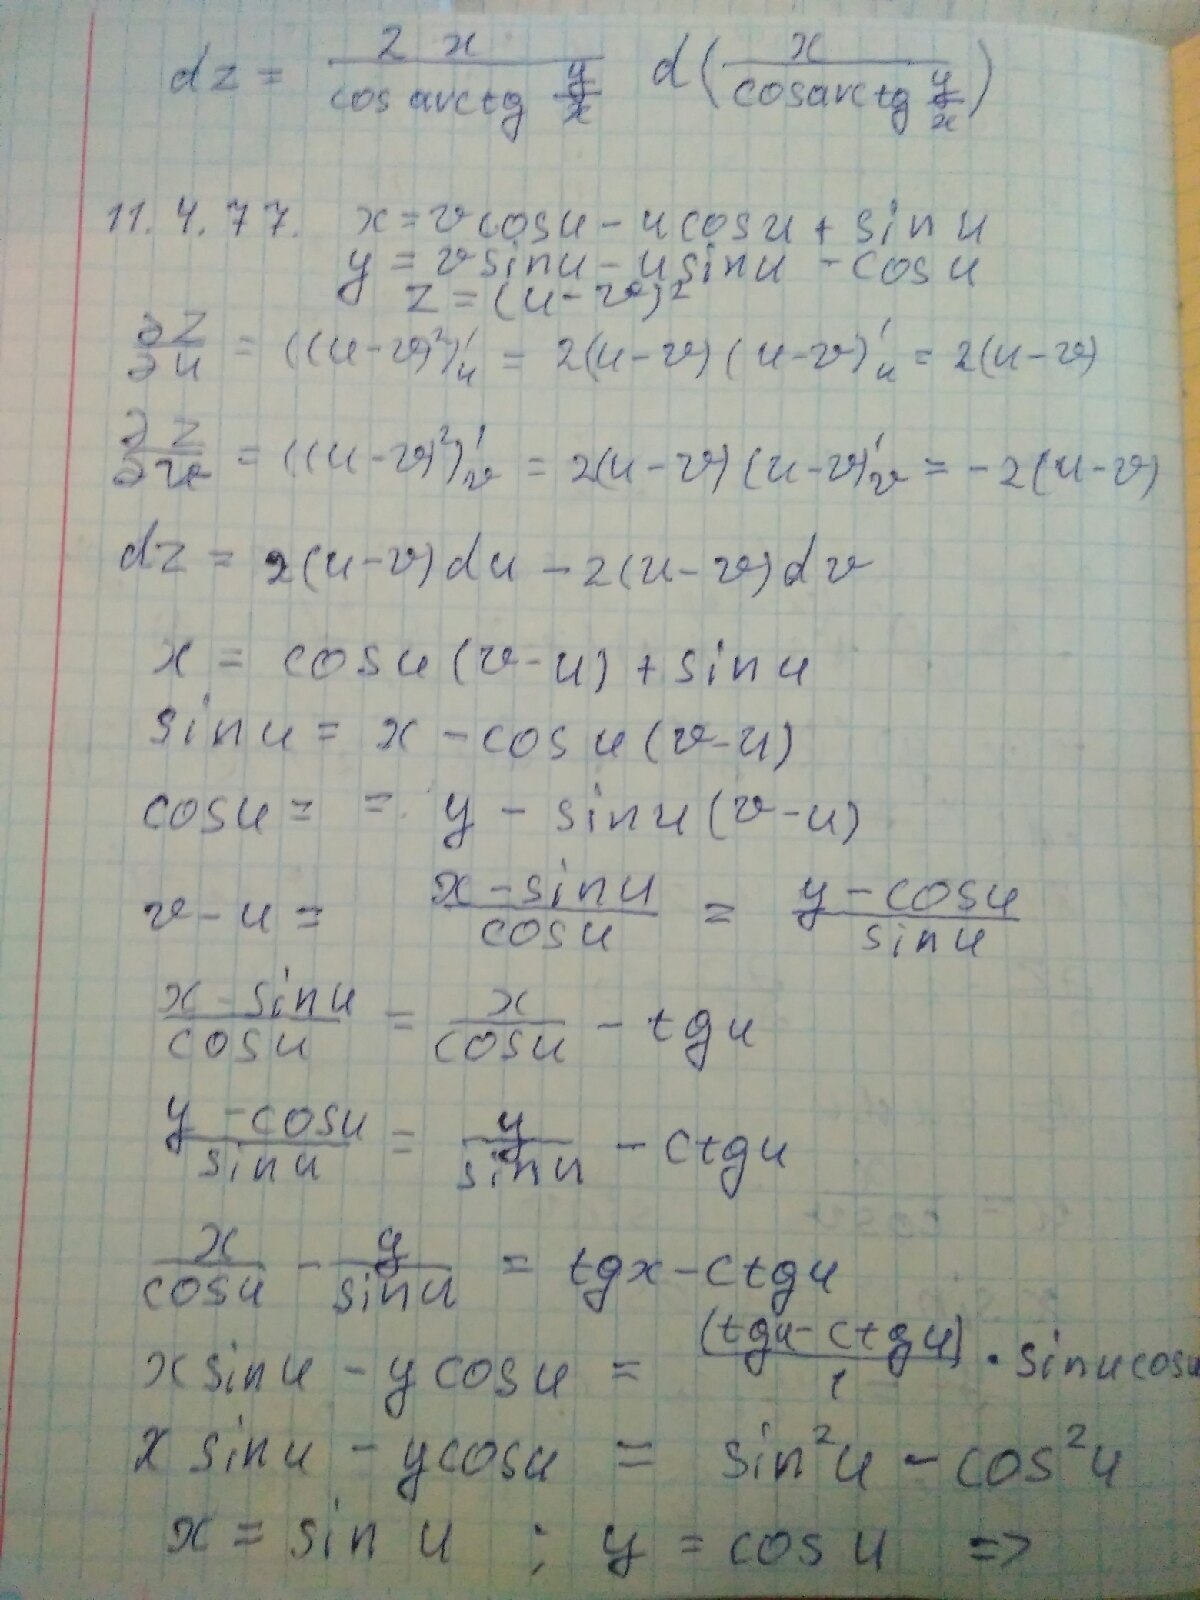 dz = \frac{2x}{cos arctg \frac{y}{x}} d(\frac{x}{cosarctg \frac{y}{x}})
11.4.77. x = v cosu - u cosu + sin u
y = v sinu - u sinu - cos u
z = (u - v)²
\frac{∂z}{∂u} = ((u-v)²)'_u = 2(u-v)(u-v)'_u = 2(u-v)
\frac{∂z}{∂v} = ((u-v)²)'_v = 2(u-v)(u-v)'_v = -2(u-v)
dz = 2(u-v)du - 2(u-v)dv
x = cosu(v-u) + sinu
sinu = x - cosu(v-u)
cosu = = y - sinu(v-u)
v-u = \frac{x-sinu}{cosu} = \frac{y-cosu}{sinu}
\frac{x-sinu}{cosu} = \frac{x}{cosu} - tgu
\frac{y-cosu}{sinu} = \frac{y}{sinu} - ctgu
\frac{x}{cosu} - \frac{y}{sinu} = tgx - ctgu
x sinu - y cosu = \frac{(tgu-ctgu)}{1} · sinucosu
x sinu - ycosu = sin²u - cos²u
x = sin u ; y = cosu =>